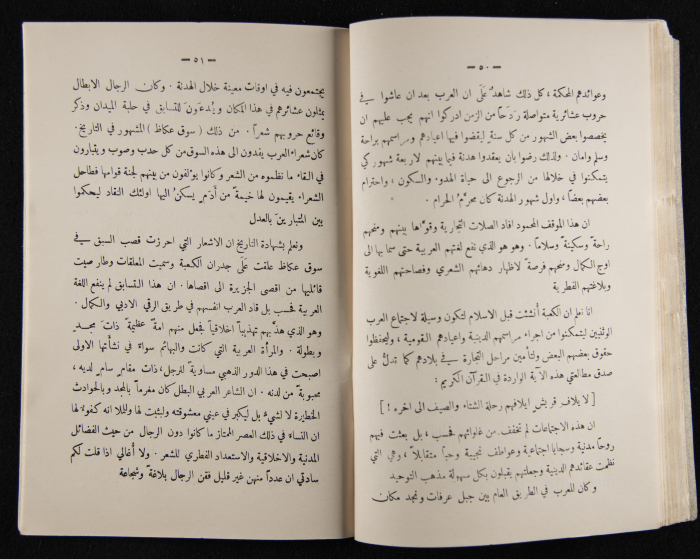 — ٥٠ —
وعوائدهم المحكمة ، كل ذلك شاهدٌ عَلَى ان العرب بعد ان عاشوا في
حروب عشائرية متواصلة رَدَحاً من الزمن ادركوا انهم يجب عليهم ان
يخصصوا بعض الشهور من كل سنةٍ ليقضوا فيها اعيادهم ومراسمهم براحة
وسلم وامان . ولذلك رضوا بان يعقدوا هدنة فيما بينهم لاربعة شهور كي
يتمكنوا في خلالها من الرجوع الى حياة الهدوء والسكون ، واحترام
بعضهم بعضاً ، واول شهور الهدنة كان محرَّم الحرام .
ان هذا الموقف المحمود افاد الصلات التجارية وقوَّاها بينهم ومنحهم
راحةً وسكينةً وسلاماً . وهو هو الذي نفع لغتهم العربية حتى سما بها الى
اوج الكمال ومنحهم فرصةً لاظهار دهائهم الشعري وفصاحتهم اللغوية
وبلاغتهم الفطرية
انا نعلم ان الكعبة أُنشئت قبل الاسلام لتكون وسيلة لاجتماع العرب
الوثنيين ليتمكنوا من اجراء مراسمهم الدينية واعيادهم القومية ، وليحفظوا
حقوق بعضهم البعض ولتأمين مراحل التجارة في بلادهم كما تدلُّ على
صدق مطالعتي هذه الآية الواردة في القرآن الكريم :
[ لايلاف قريش ايلافهم رحلة الشتاء والصيف الى اخره ! ]
ان هذه الاجتماعات لم تخفف من غلوائهم فحسب ، بل بعثت فيهم
روحاً مدنية وسجايا اجتماعية وعواطف نجيبة وحباً متقابلاً ، وهي التي
نظمت عقائدهم الدينية وجعلتهم يقبلون بكل سهولة مذهب التوحيد
وكان للعرب في الطريق العام بين جبل عرفات ونجد مكان
— ٥١ —
يجتمعون فيه في اوقات معينة خلال الهدنة . وكان الرجال الابطال
يمثلون عشائرهم في هذا المكان ويُدعَونَ للتسابق في حلبة الميدان وذكر
وقائع حروبهم شعراً . من ذلك ( سوق عكاظ ) المشهور في التاريخ .
كان شعراء العرب يفدون الى هذه السوق من كل حدب وصوب ويتبارون
في القاء ما نظموه من الشعر وكانوا يؤلفون من بينهم لجنة قوامها فطاحل
الشعراء يقيمون لها خيمةً من أَدَم يسكنُ اليها اولئك النقاد ليحكموا
بين المتبارين بالعدل
ونعلم بشهادة التاريخ ان الاشعار التي احرزت قصب السبق في
سوق عكاظ علقت عَلَى جدران الكعبة وسميت المعلقات وطار صيت
قائليها من اقصى الجزيرة الى اقصاها . ان هذا التسابق لم ينفع اللغة
العربية فحسب بل قاد العرب انفسهم في طريق الرقي الادبي والكمال .
وهو الذي هذَّبهم تهذيباً اخلاقياً فجعل منهم امةً عظيمةً ذات مجد
وبطولة . والمرأة العربية التي كانت والبهائم سواءً في نشأتها الاولى
اصبحت في هذا الدور الذهبي مساويةً للرجل ، ذات مقام سام لديه ،
محبوبةً من لدنه . ان الشاعر العربي البطل كان مغرماً بالمجد وبالحوادث
الخطيرة لا لشيء بل ليكبر في عيني معشوقته وليثبت لها ولليلا انه كفوء لها
ان النساء في ذلك العصر الممتاز ما كانوا دون الرجال من حيث الفضائل
المدنية والاخلاقية والاستعداد الفطري للشعر . ولا أُغالي اذا قلت لكم
سادتي ان عدداً منهن غير قليل فقن الرجال بلاغةً وشجاعة